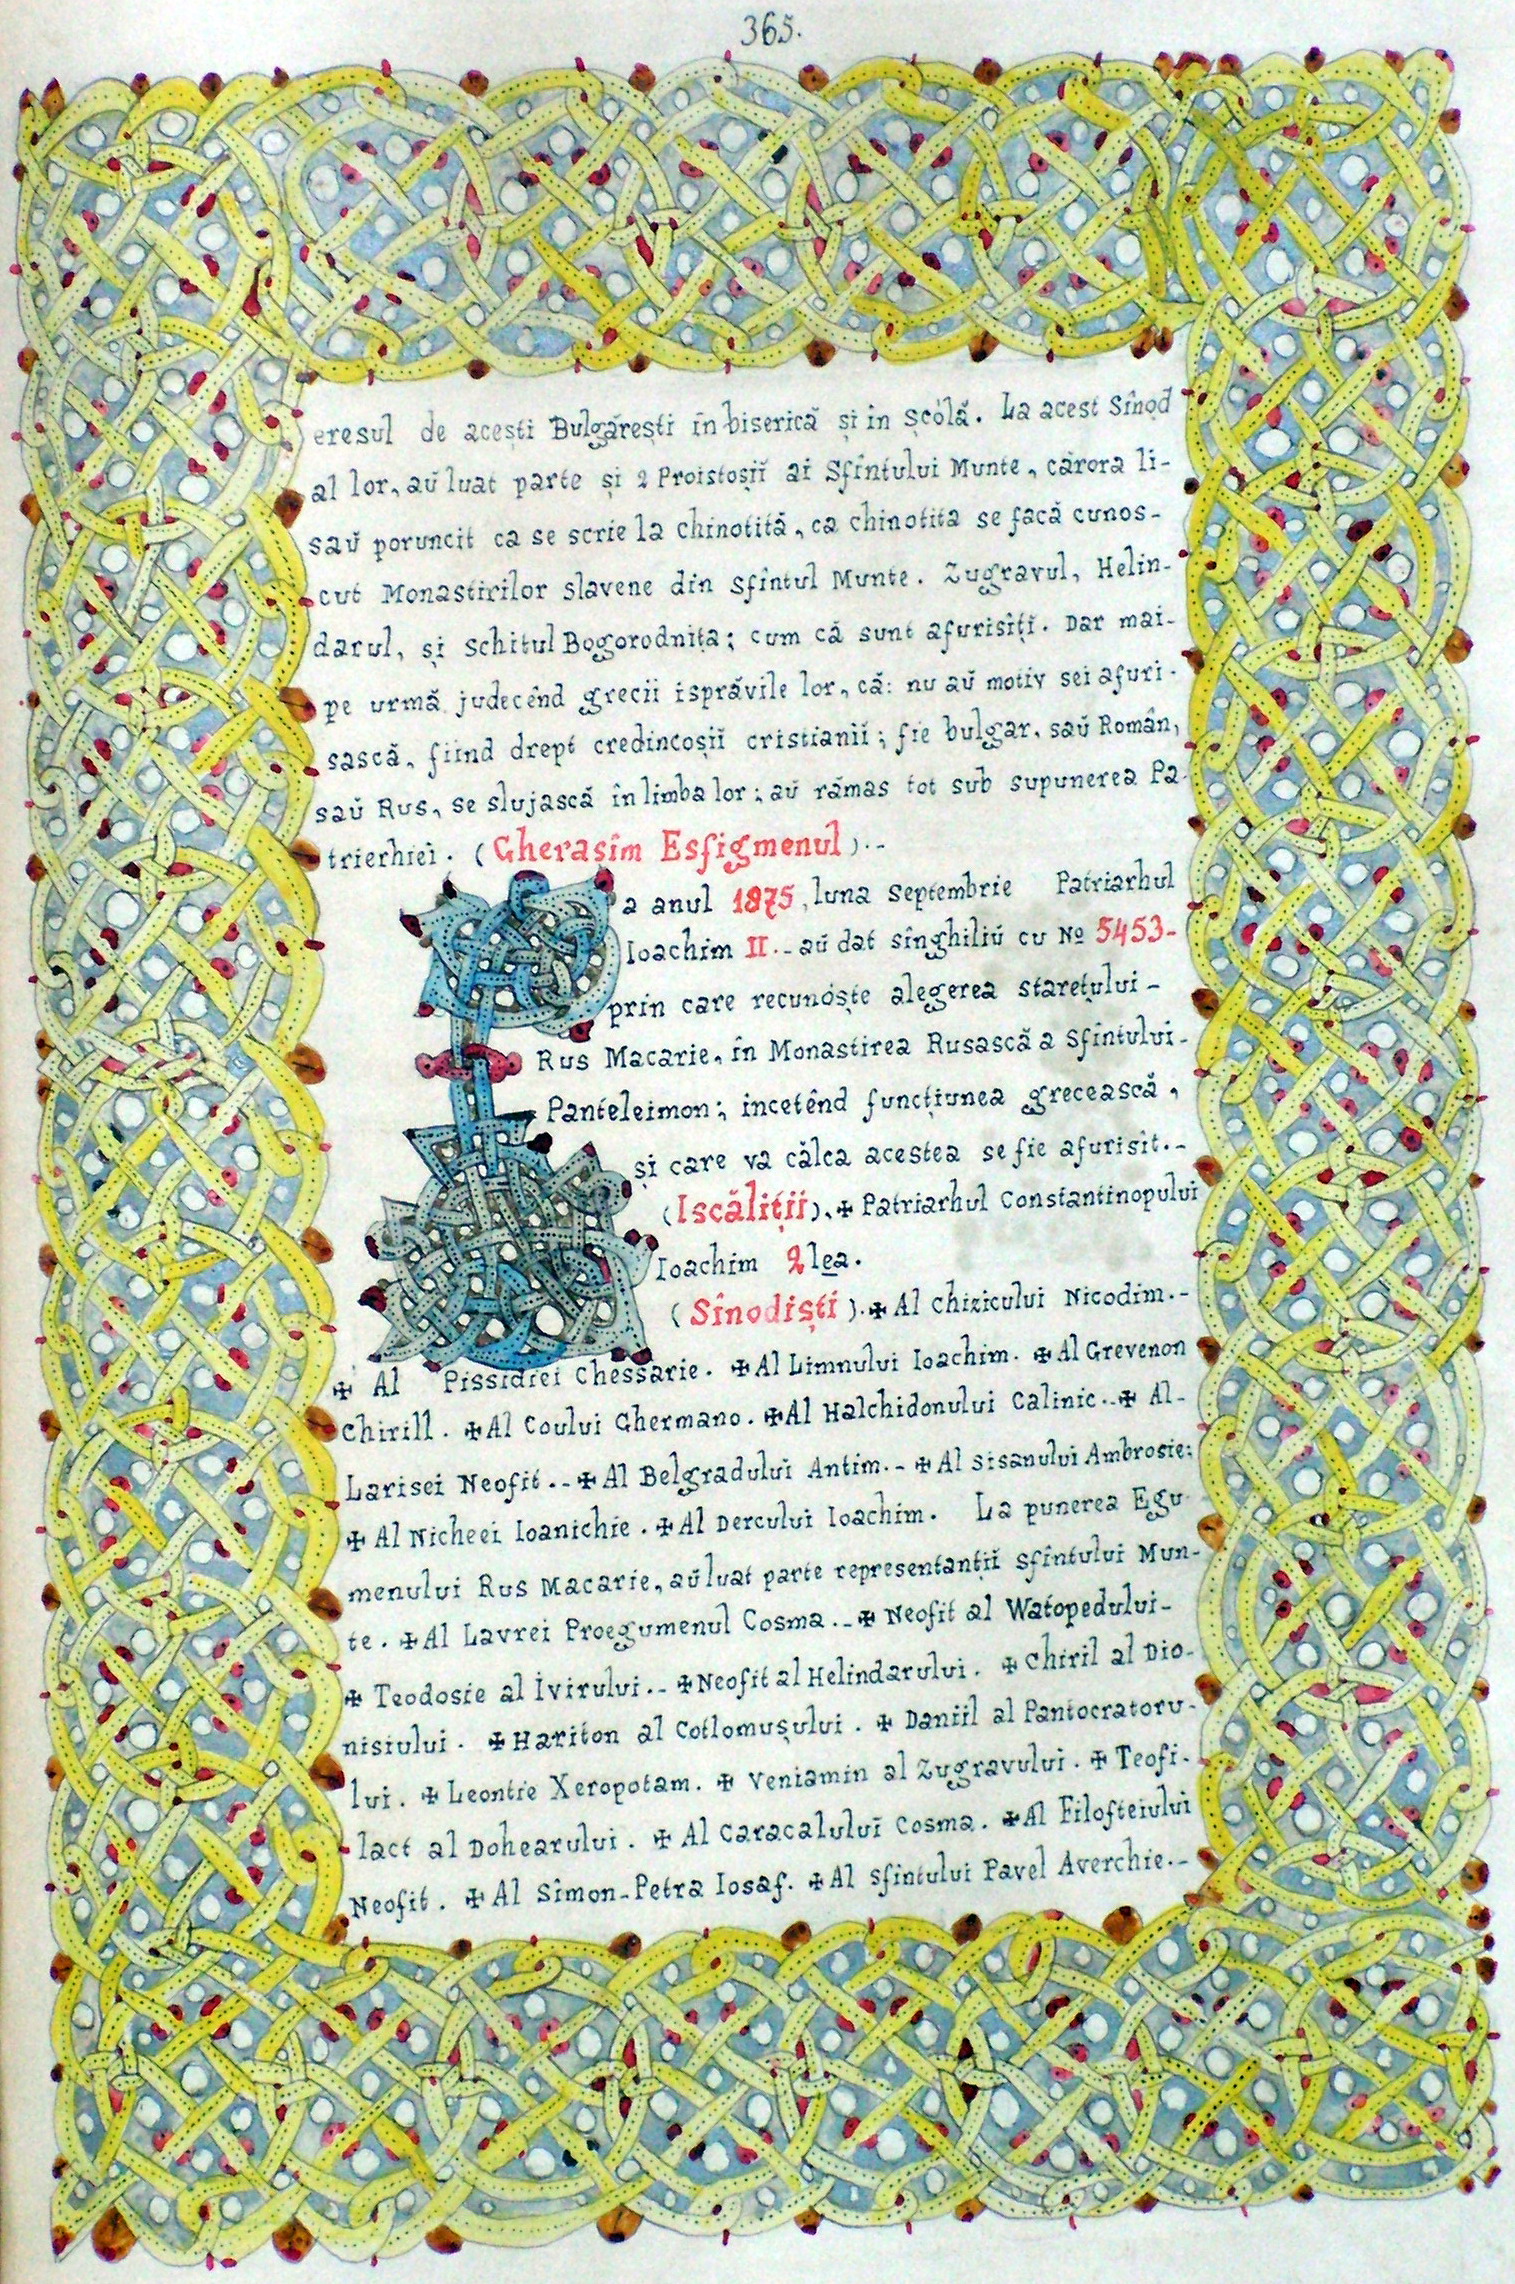 365.
eresul de acești Bulgărești în biserică și în școlă. La acest Sînod
al lor, aŭ luat parte și 2 Proistoșiĭ ai Sfîntului Munte, cărora li-
saŭ poruncit ca se scrie la chinotită, ca chinotita se facă cunos-
cut Monastirilor slavene din sfîntul Munte. Zugravul, Helin-
darul, și schitul Bogorodnița; cum că sunt afurisîți. Dar mai-
pe urmă judecênd grecii isprăvile lor, că: nu aŭ motiv sei afuri-
sască, fiind drept credincoșiĭ cristianiĭ; fie bulgar, saŭ Român,
saŭ Rus, se slujască în limba lor; aŭ rămas tot sub supunerea Pa-
trierhiei. (Gherasîm Esfigmenul).-
La anul 1875, luna Septembrie Patriarhul
Ioachim II.- aŭ dat sînghiliŭ cu № 5453-
prin care recunóște alegerea starețului-
Rus Macarie, în Monastirea Rusască a Sfîntului-
Panteleimon; incetênd funcțiunea grecească,
și care va călca acestea se fie afurisît.-
(Iscălițiĭ). ✠ Patriarhul Constantinopului
Ioachim 2lea.
(Sînodiști). ✠ Al chizicului Nicodim.-
✠ Al Pissidiei Chessarie. ✠ Al Limnului Ioachim. ✠ Al Grevenon
Chirill. ✠ Al Coului Ghermano. ✠ Al Halchidonului Calinic.- ✠ Al-
Larisei Neofit.- ✠ Al Belgraduluĭ Antim.- ✠ Al Sisanului Ambrosie;
✠ Al Nicheei Ioanichie. ✠ Al Dercului Ioachim. La punerea Egu-
menului Rus Macarie, aŭ luat parte representantiĭ sfîntului Mun-
te. ✠ Al Lavrei Proegumenul Cosma.- ✠ Neofit al Watopedului-
✠ Teodosie al Ivirului.- ✠ Neofit al Helindarului. ✠ Chiril al Dio-
nisiului. ✠ Hariton al Cotlomușului. ✠ Daniil al Pantocratoru-
lui. ✠ Leontie Xeropotam. ✠ Veniamin al Zugravului. ✠ Teofi-
lact al Dohearului. ✠ Al Caracaluluĭ Cosma. ✠ Al Filofteiului
Neofit. ✠ Al Simon-Petra Iosaf. ✠ Al sfîntului Pavel Averchie.-